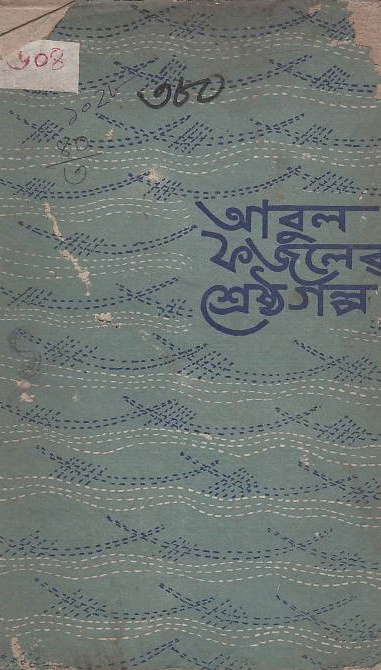 ৩০৪
৩৮০
৪০
৩
আবুল
ফজলের
শ্রেষ্ঠ গল্প